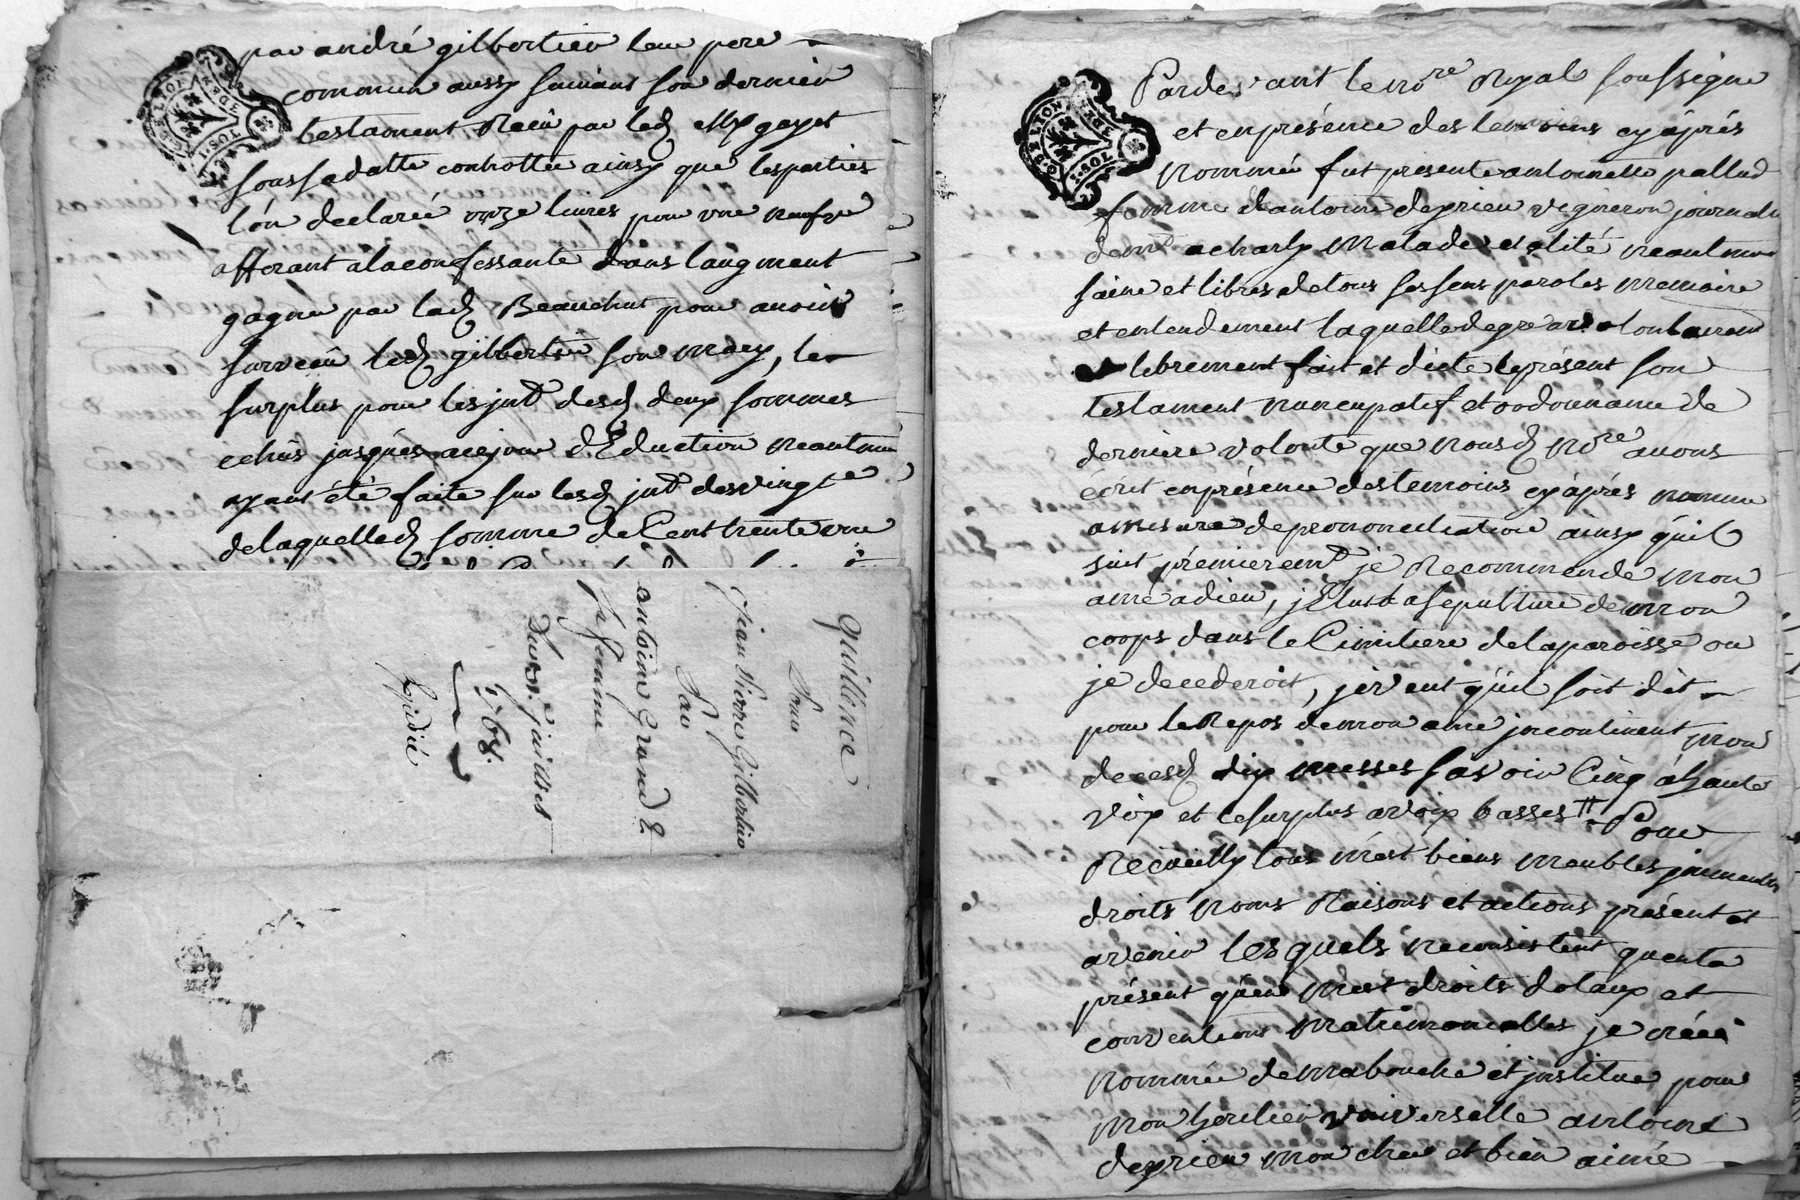 par andré gilbertier leur pere
commun aussy suivant son dernier
testament Receu par led. Me gayet
sous sa datte conhottée ainsy que les parties
l'on declarée onze livres pour une neufve
afferant a la confessante dans l'augment
gagné par lad. Beauchut pour avoir
surveçu led. gilbertié son mary, le
surplus pour les jnt. desd. deux sommes
echus jusques a ce jour déduction neantm
ayant été faite sur lesd. jnt. des vingte
de laquelle d. somme de Cent trente une
quittence
pour
jean Pierre Gilbertier
par
antoine Grand &
sa femme
Du 1 juillet
1768.
Expédié
Pardevant le nore Royal soussigné
et en présence des temoins cy aprés
nommé fut presente antoinette pallud
femme d'antoine deprieu vigneron journalie
demt a charly malade et alité neantmoins
saine et libres de tous ses sens paroles memoire
et entendement laquelle de gré a volontairem
librement fait et dicte le présent son
testament nuncupatif et ordonnance de
derniere volonté que nous d. nore avons
écrit en présence des temoins cy aprés nommé
a mesure de prononciation ainsy qu'il
suit premieremt je Recommende mon
ame a dieu, j'Elus la sepulture de mon
corps dans le Cimitiere de la paroisse ou
je decederoit, je veut qu'il soit dit
pour le Repos de mon ame jncontinent mon
deces d. dix messes savoir Cinq a haute
voix et le surplus a voix basses Pour
Recueilly tous mest biens meubles jmmeubles
droits noms Raisons et actions présent et
avenir lesquels ne consistent quenta
présent qu'en mest droits dotaux et
conventions matrimonialles je créé
nommée de ma bouche et jnstitue pour
mon heritier universelle antoine
deprieu mon cher et bien aimé